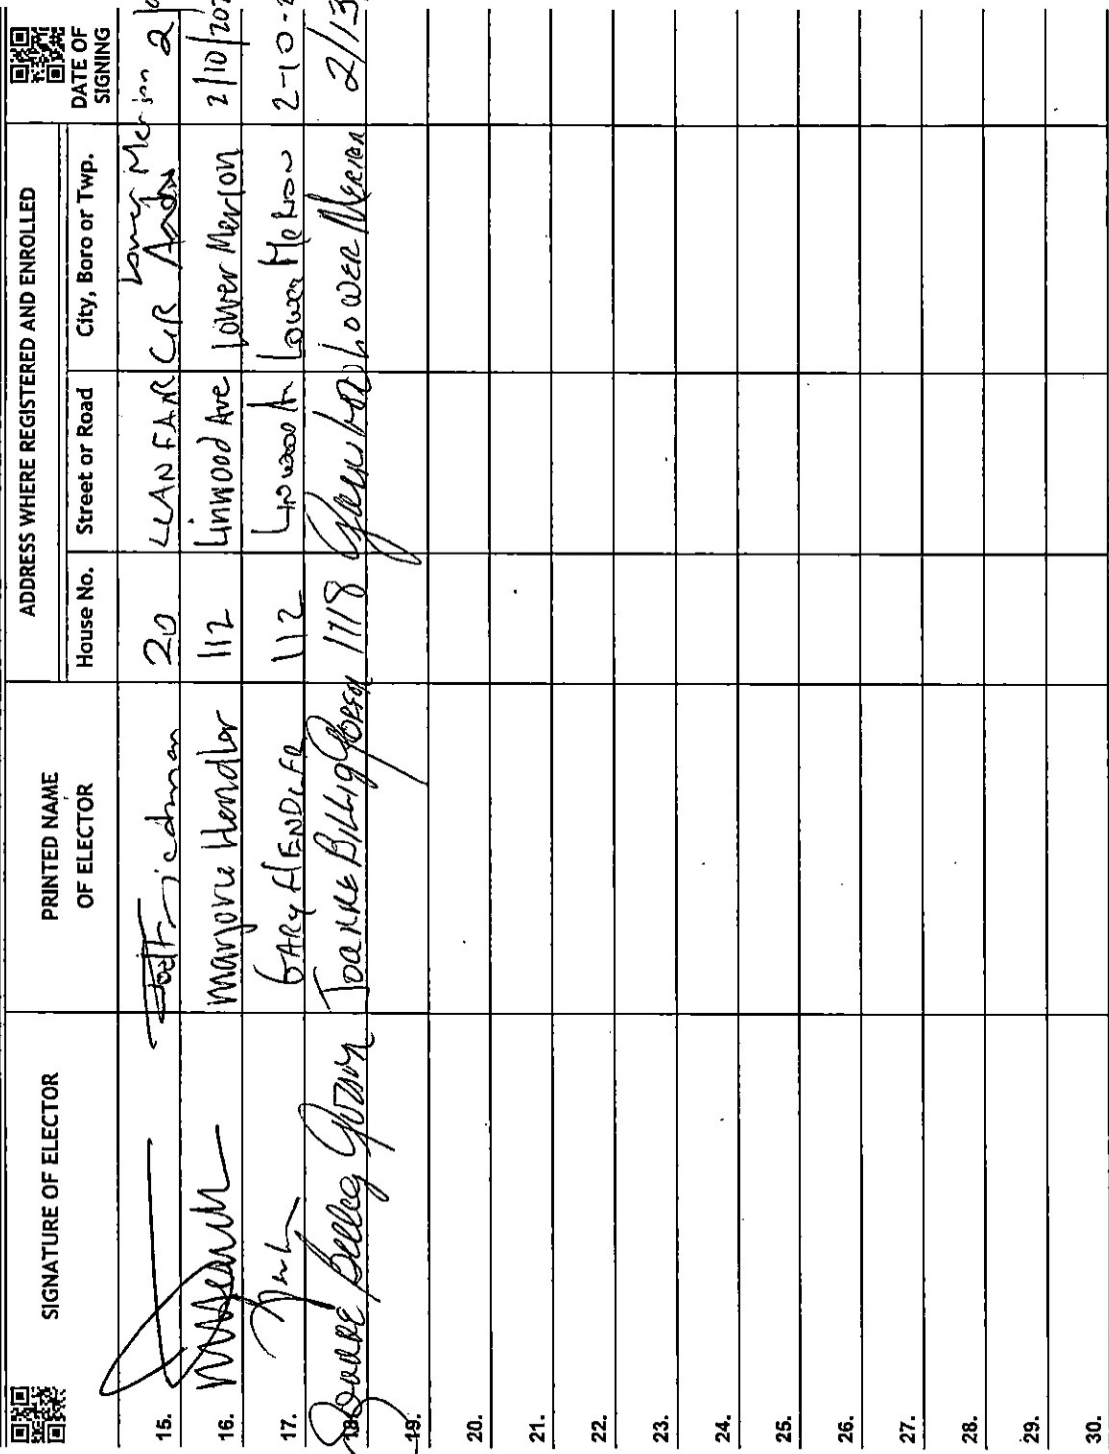 SIGNATURE OF ELECTOR
PRINTED NAME
OF ELECTOR
ADDRESS WHERE REGISTERED AND ENROLLED
House No.
Street or Road
City, Boro or Twp.
DATE OF
SIGNING
15. Friedman 20 LLANFAIR CIR Lower Merion 2/
16. Marjorie Hendler 112 Linwood Ave Lower Merion 2/10/202
17. GARY HENDLER 112 Linwood Lower Merion 2-10-2
18. Joanne Billig Gorson JOANNE BILLIG 1118 LOWER MERION 2/13
19.
20.
21.
22.
23.
24.
25.
26.
27.
28.
29.
30.